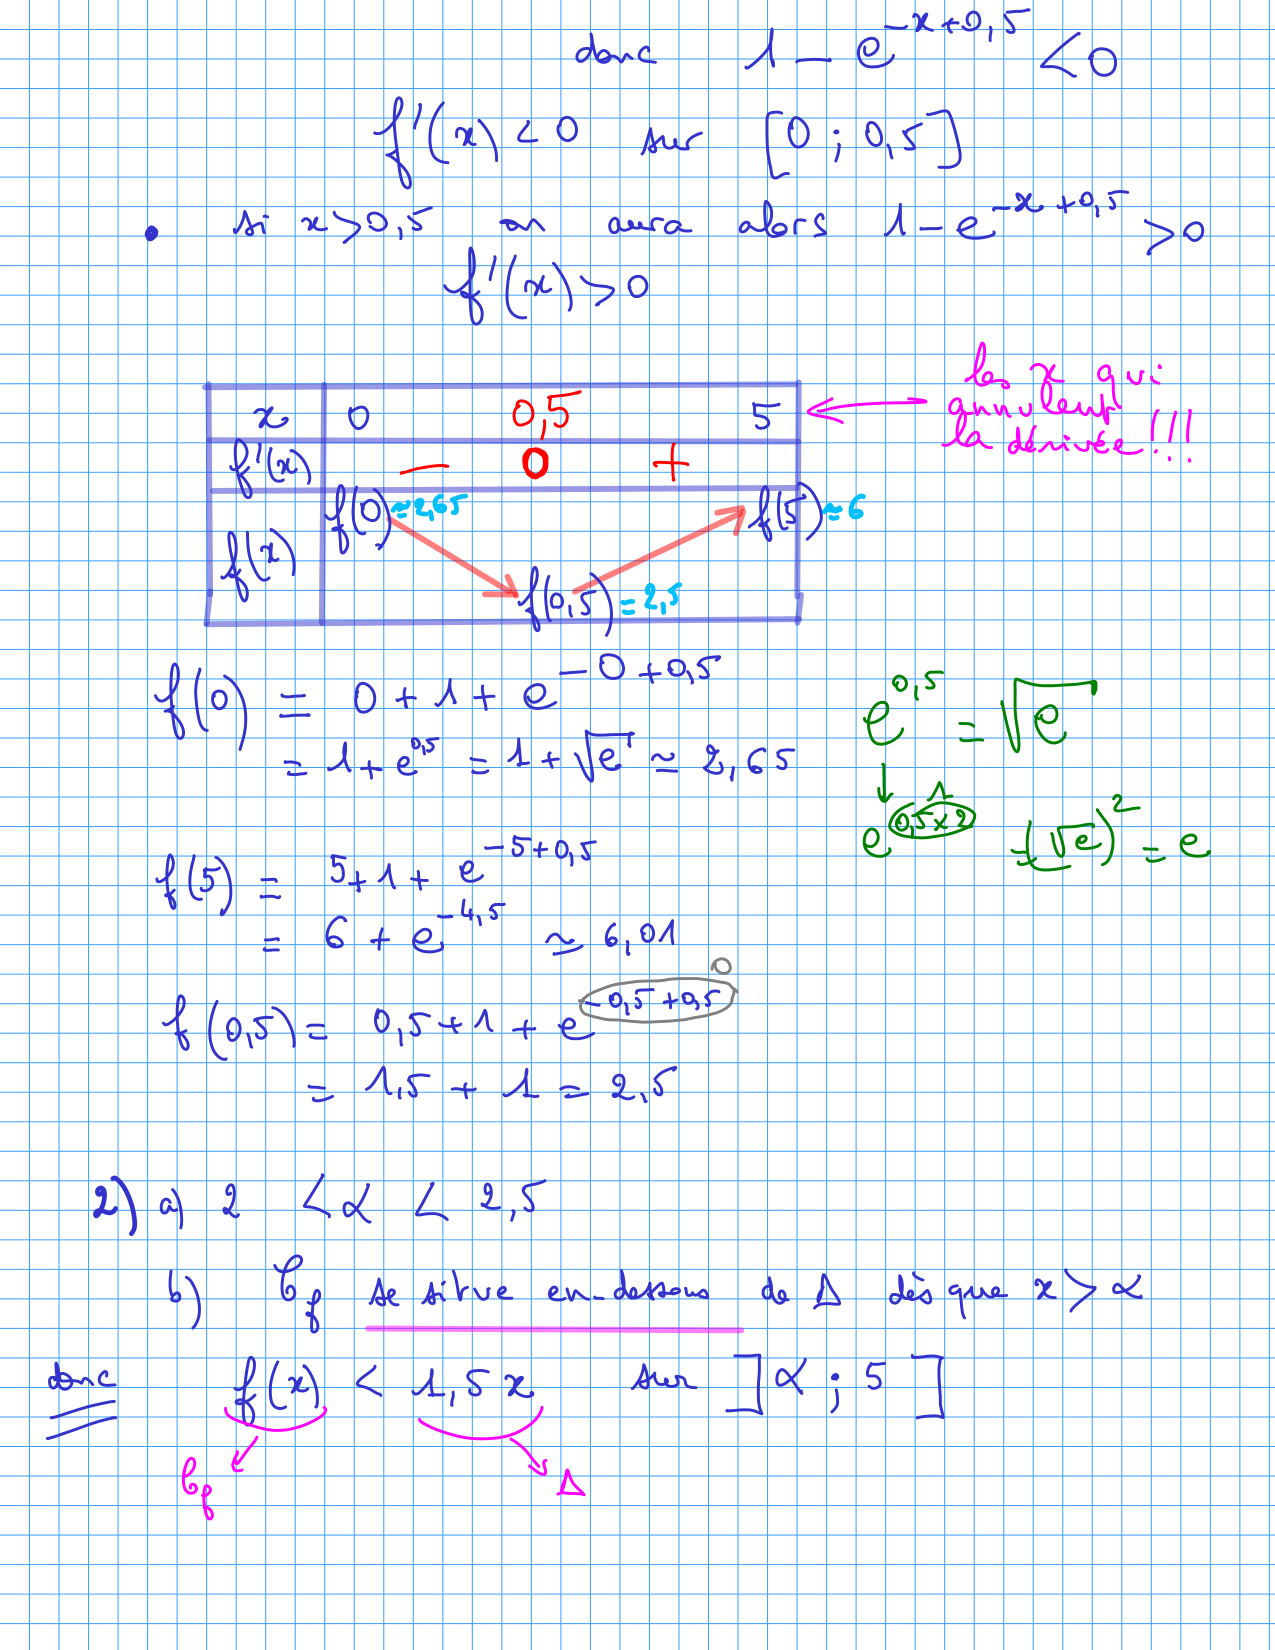 donc 1 - e^{-x+0,5} < 0
f'(x) < 0 sur [0 ; 0,5]
• si x > 0,5 on aura alors 1 - e^{-x+0,5} > 0
f'(x) > 0
les x qui
annulent
la dérivée !!!
x 0 0,5 5
f'(x) — 0 +
f(x) f(0) ≃ 2,65 f(0,5) = 2,5 f(5) ≃ 6
f(0) = 0 + 1 + e^{-0+0,5}
= 1 + e^{0,5} = 1 + √e ≃ 2,65
e^{0,5} = √e
e^{0,5×2} = (√e)^2 = e
1
f(5) = 5 + 1 + e^{-5+0,5}
= 6 + e^{-4,5} ≃ 6,01
f(0,5) = 0,5 + 1 + e^{-0,5+0,5}
0
= 1,5 + 1 = 2,5
2) a) 2 < α < 2,5
b) C_f se situe en-dessous de Δ dès que x > α
donc f(x) < 1,5 x sur ]α ; 5]
C_f Δ